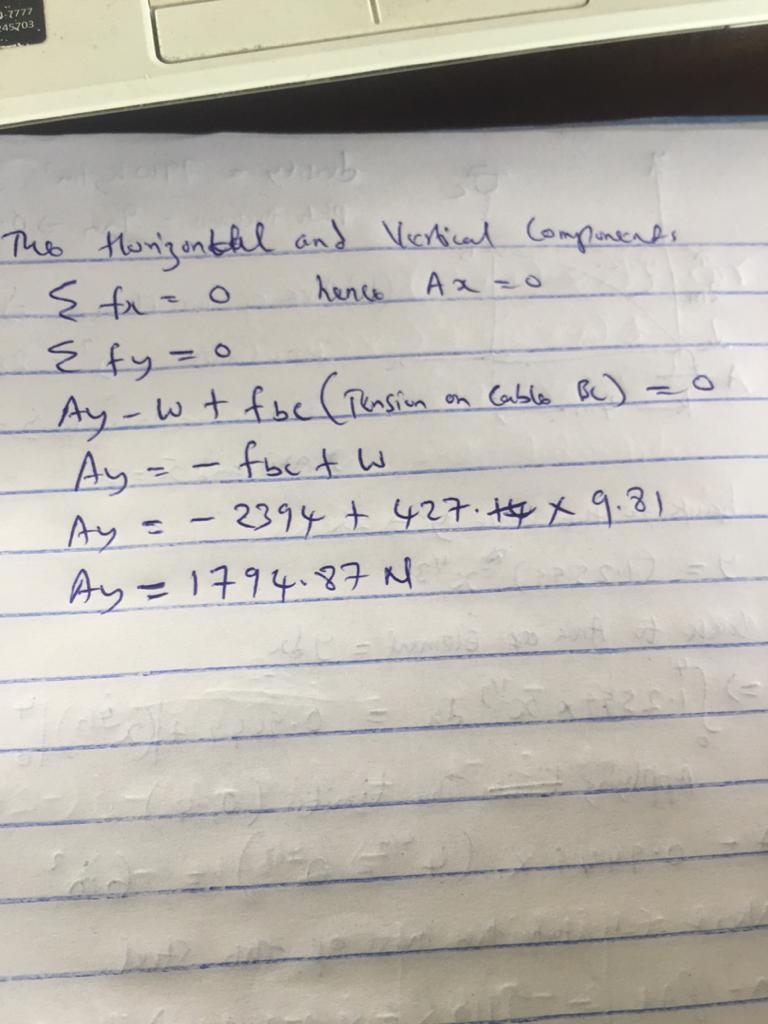 -7777
45703
The Horizontal and Vertical Components
Σ fx = 0 hence Ax = 0
Σ fy = 0
Ay - W + fbc (Tension on Cable BC) = 0
Ay = - fbc + W
Ay = - 2394 + 427. × 9.81
Ay = 1794.87 N